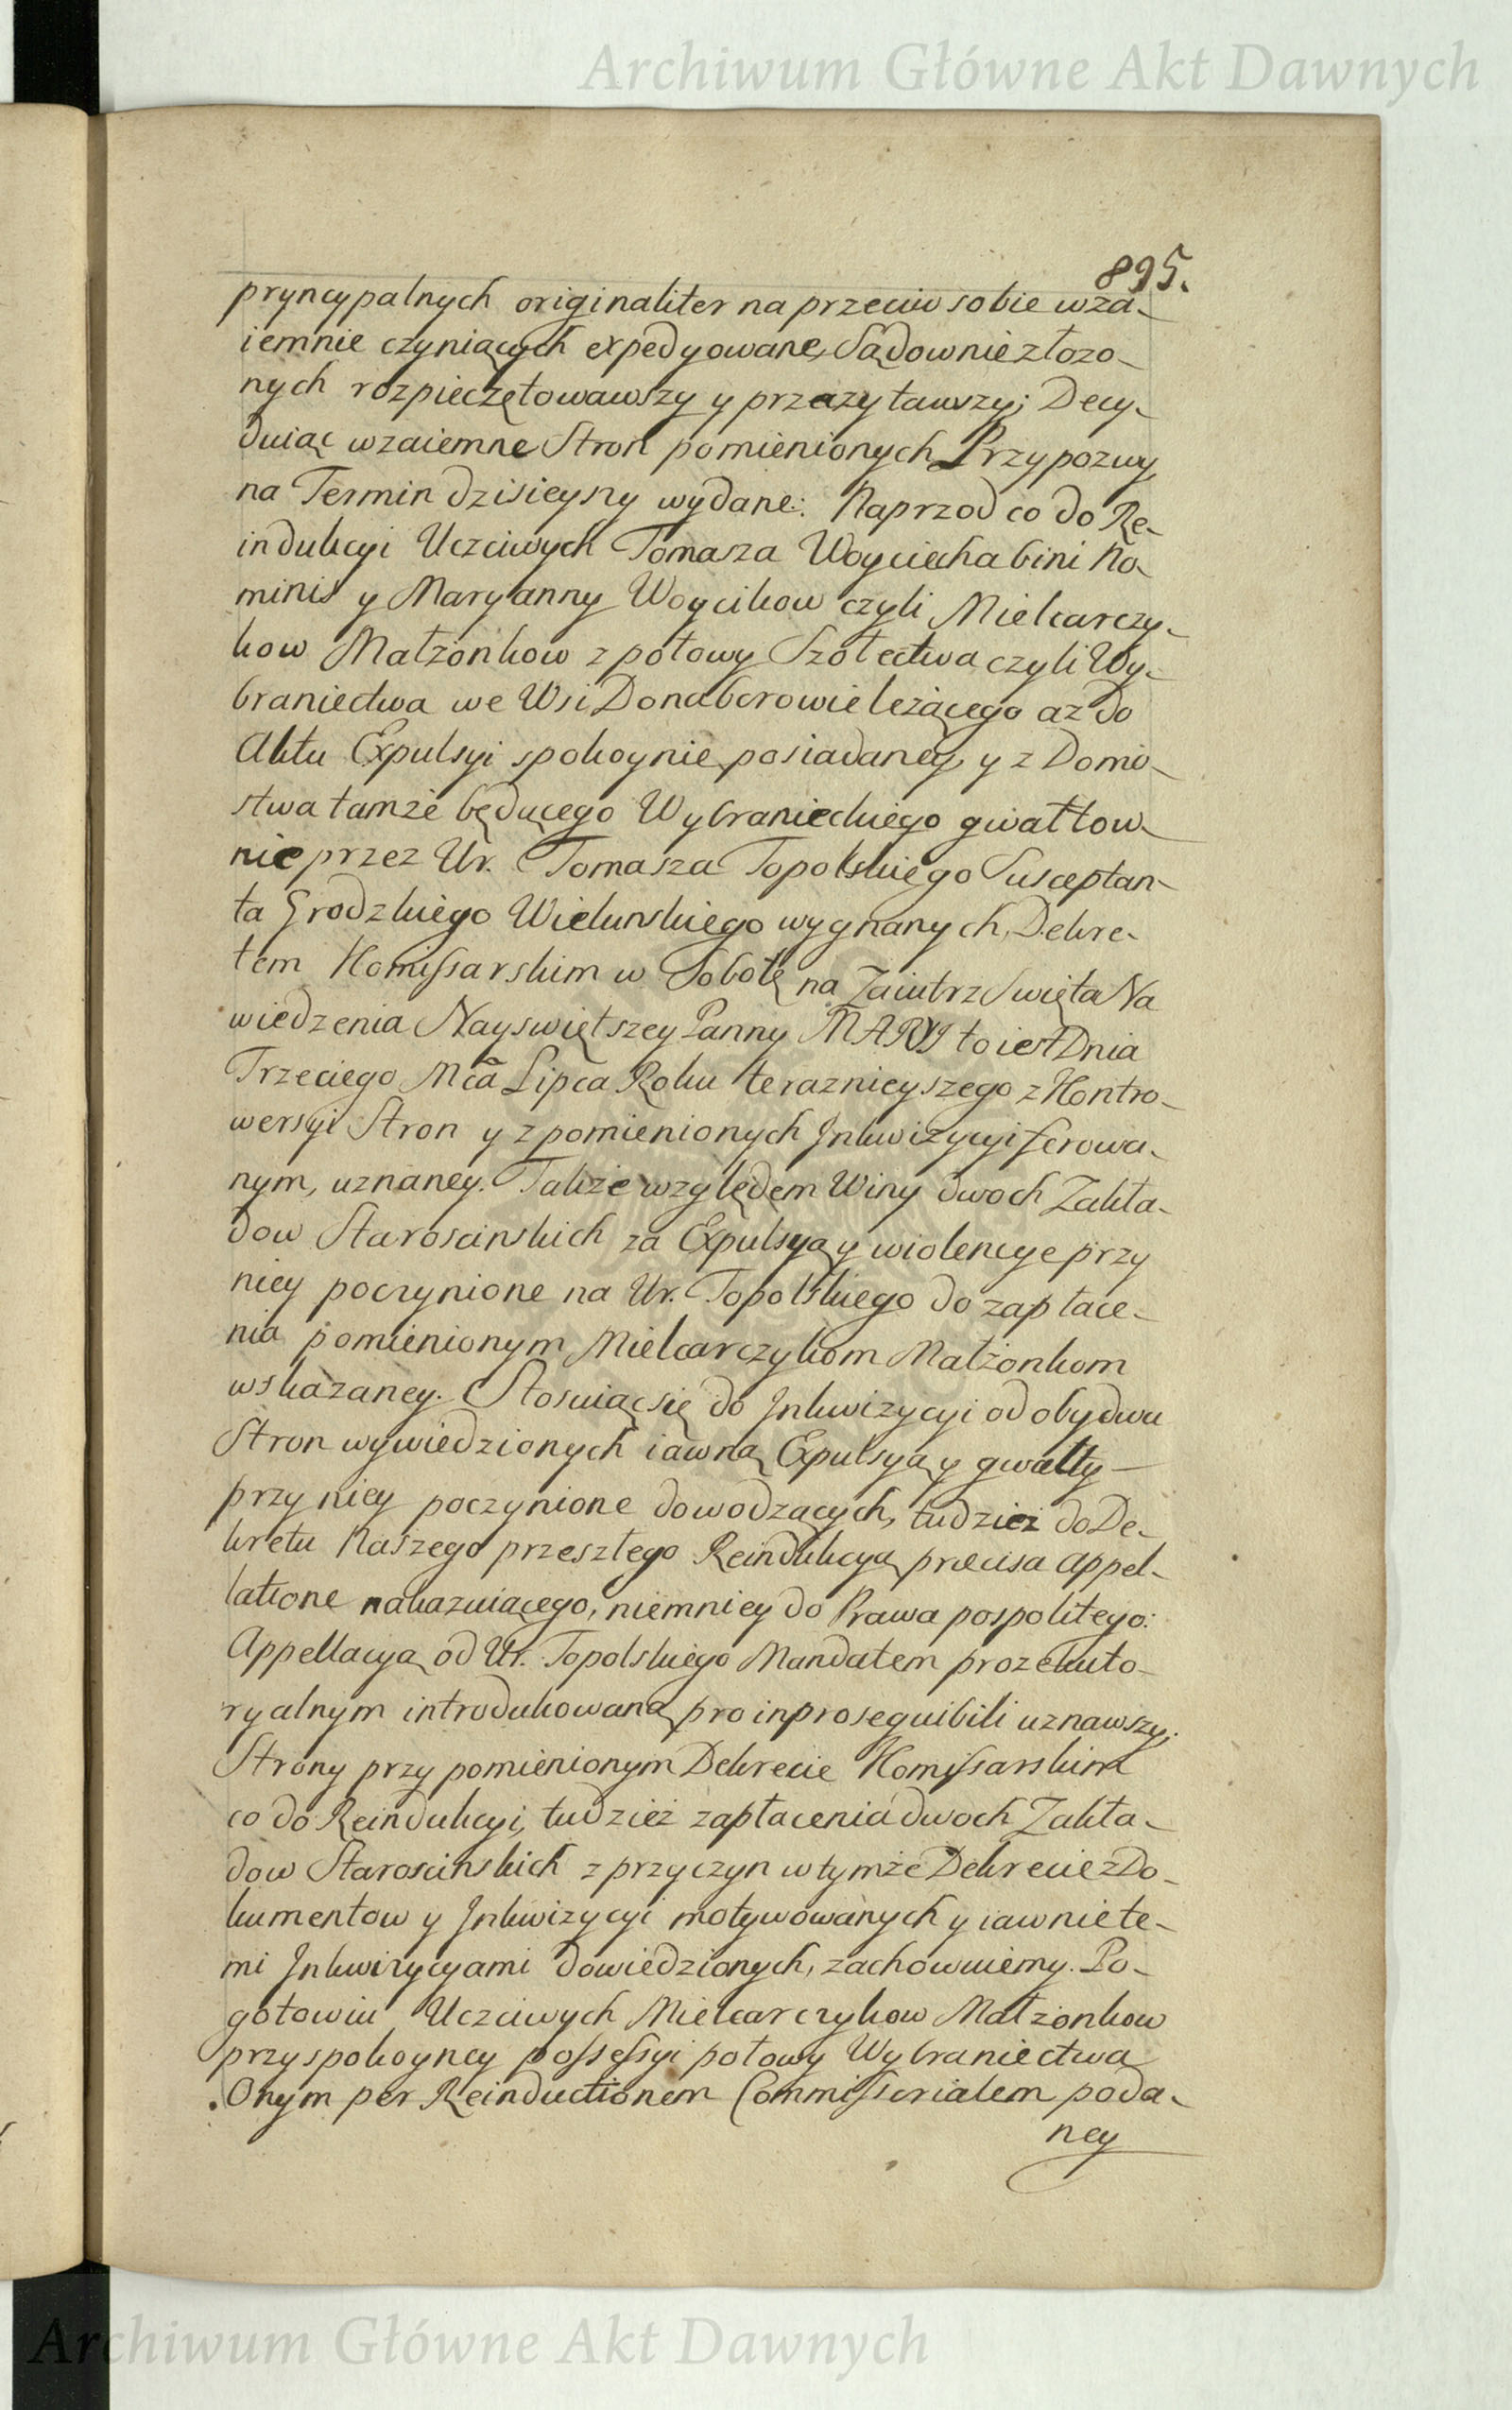 Archiwum Główne Akt Dawnych
895.
pryncypalnych originaliter na przeciw sobie wza-
iemnie czyniących expedyowane, Sądownie złozo-
nych rozpieczętowawszy y przeczytawszy; Decy-
duiąc wzaiemne Stron pomienionych Przypozwy
na Termin dzisieyszy wydane: Naprzod co do Re-
indukcyi Uczciwych Tomasza Woyciecha bini No-
minis y Maryanny Woycikow czyli Mielcarczy-
kow Małżonkow z połowy Szołectwa czyli Wy-
braniectwa we Wsi Donaborowie leżącego az do
Aktu Expulsyi spokoynie posiadaney y z Domo-
stwa tamże będącego Wybranieckiego gwałtow-
nie przez Ur. Tomasza Topolskiego Susceptan-
ta Grodzkiego Wielunskiego wygnanych, Dekre-
tem Komissarskim w Sobotę na Zaiutrz Swięta Na
wiedzenia Nayswiętszey Panny MARYI to iest Dnia
Trzeciego Mca Lipca Roku teraznieyszego z Kontro-
wersyi Stron y z pomienionych Inkwizycyi ferowa-
nym, uznaney. Takze względem Winy dwoch Zakła-
dow Staroscinskich za Expulsyą y wiolencye przy
niey poczynione na Ur. Topolskiego do zapłace-
nia pomienionym Mielcarczykom Małżonkom
wskazaney. Stosuiąc się do Inkwizycyi od obydwu
Stron wywiedzionych iawną Expulsyą y gwałty
przy niey poczynione dowodzących, tudziez do De-
kretu Naszego przeszłego Reindukcyą præcisa appel-
latione nakazuiącego, niemniey do Prawa pospolitego:
Appellacyą od Ur. Topolskiego Mandatem prozekuto-
ryalnym introdukowaną pro inprosequibili uznawszy;
Strony przy pomienionym Dekrecie Komissarskim
co do Reindukcyi, tudzież zapłacenia dwoch Zakła-
dow Staroscinskich z przyczyn w tymże Dekrecie z Do-
kumentow y Inkwizycyi motywowanych y iawnie te-
mi Inkwizycyami dowiedzionych, zachowuiemy. Po-
gotowiu Uczciwych Mielcarczykow Małżonkow
przy spokoyney possessyi połowy Wybraniectwa
Onym per Reinductionem Commissorialem poda-
ney
Archiwum Główne Akt Dawnych